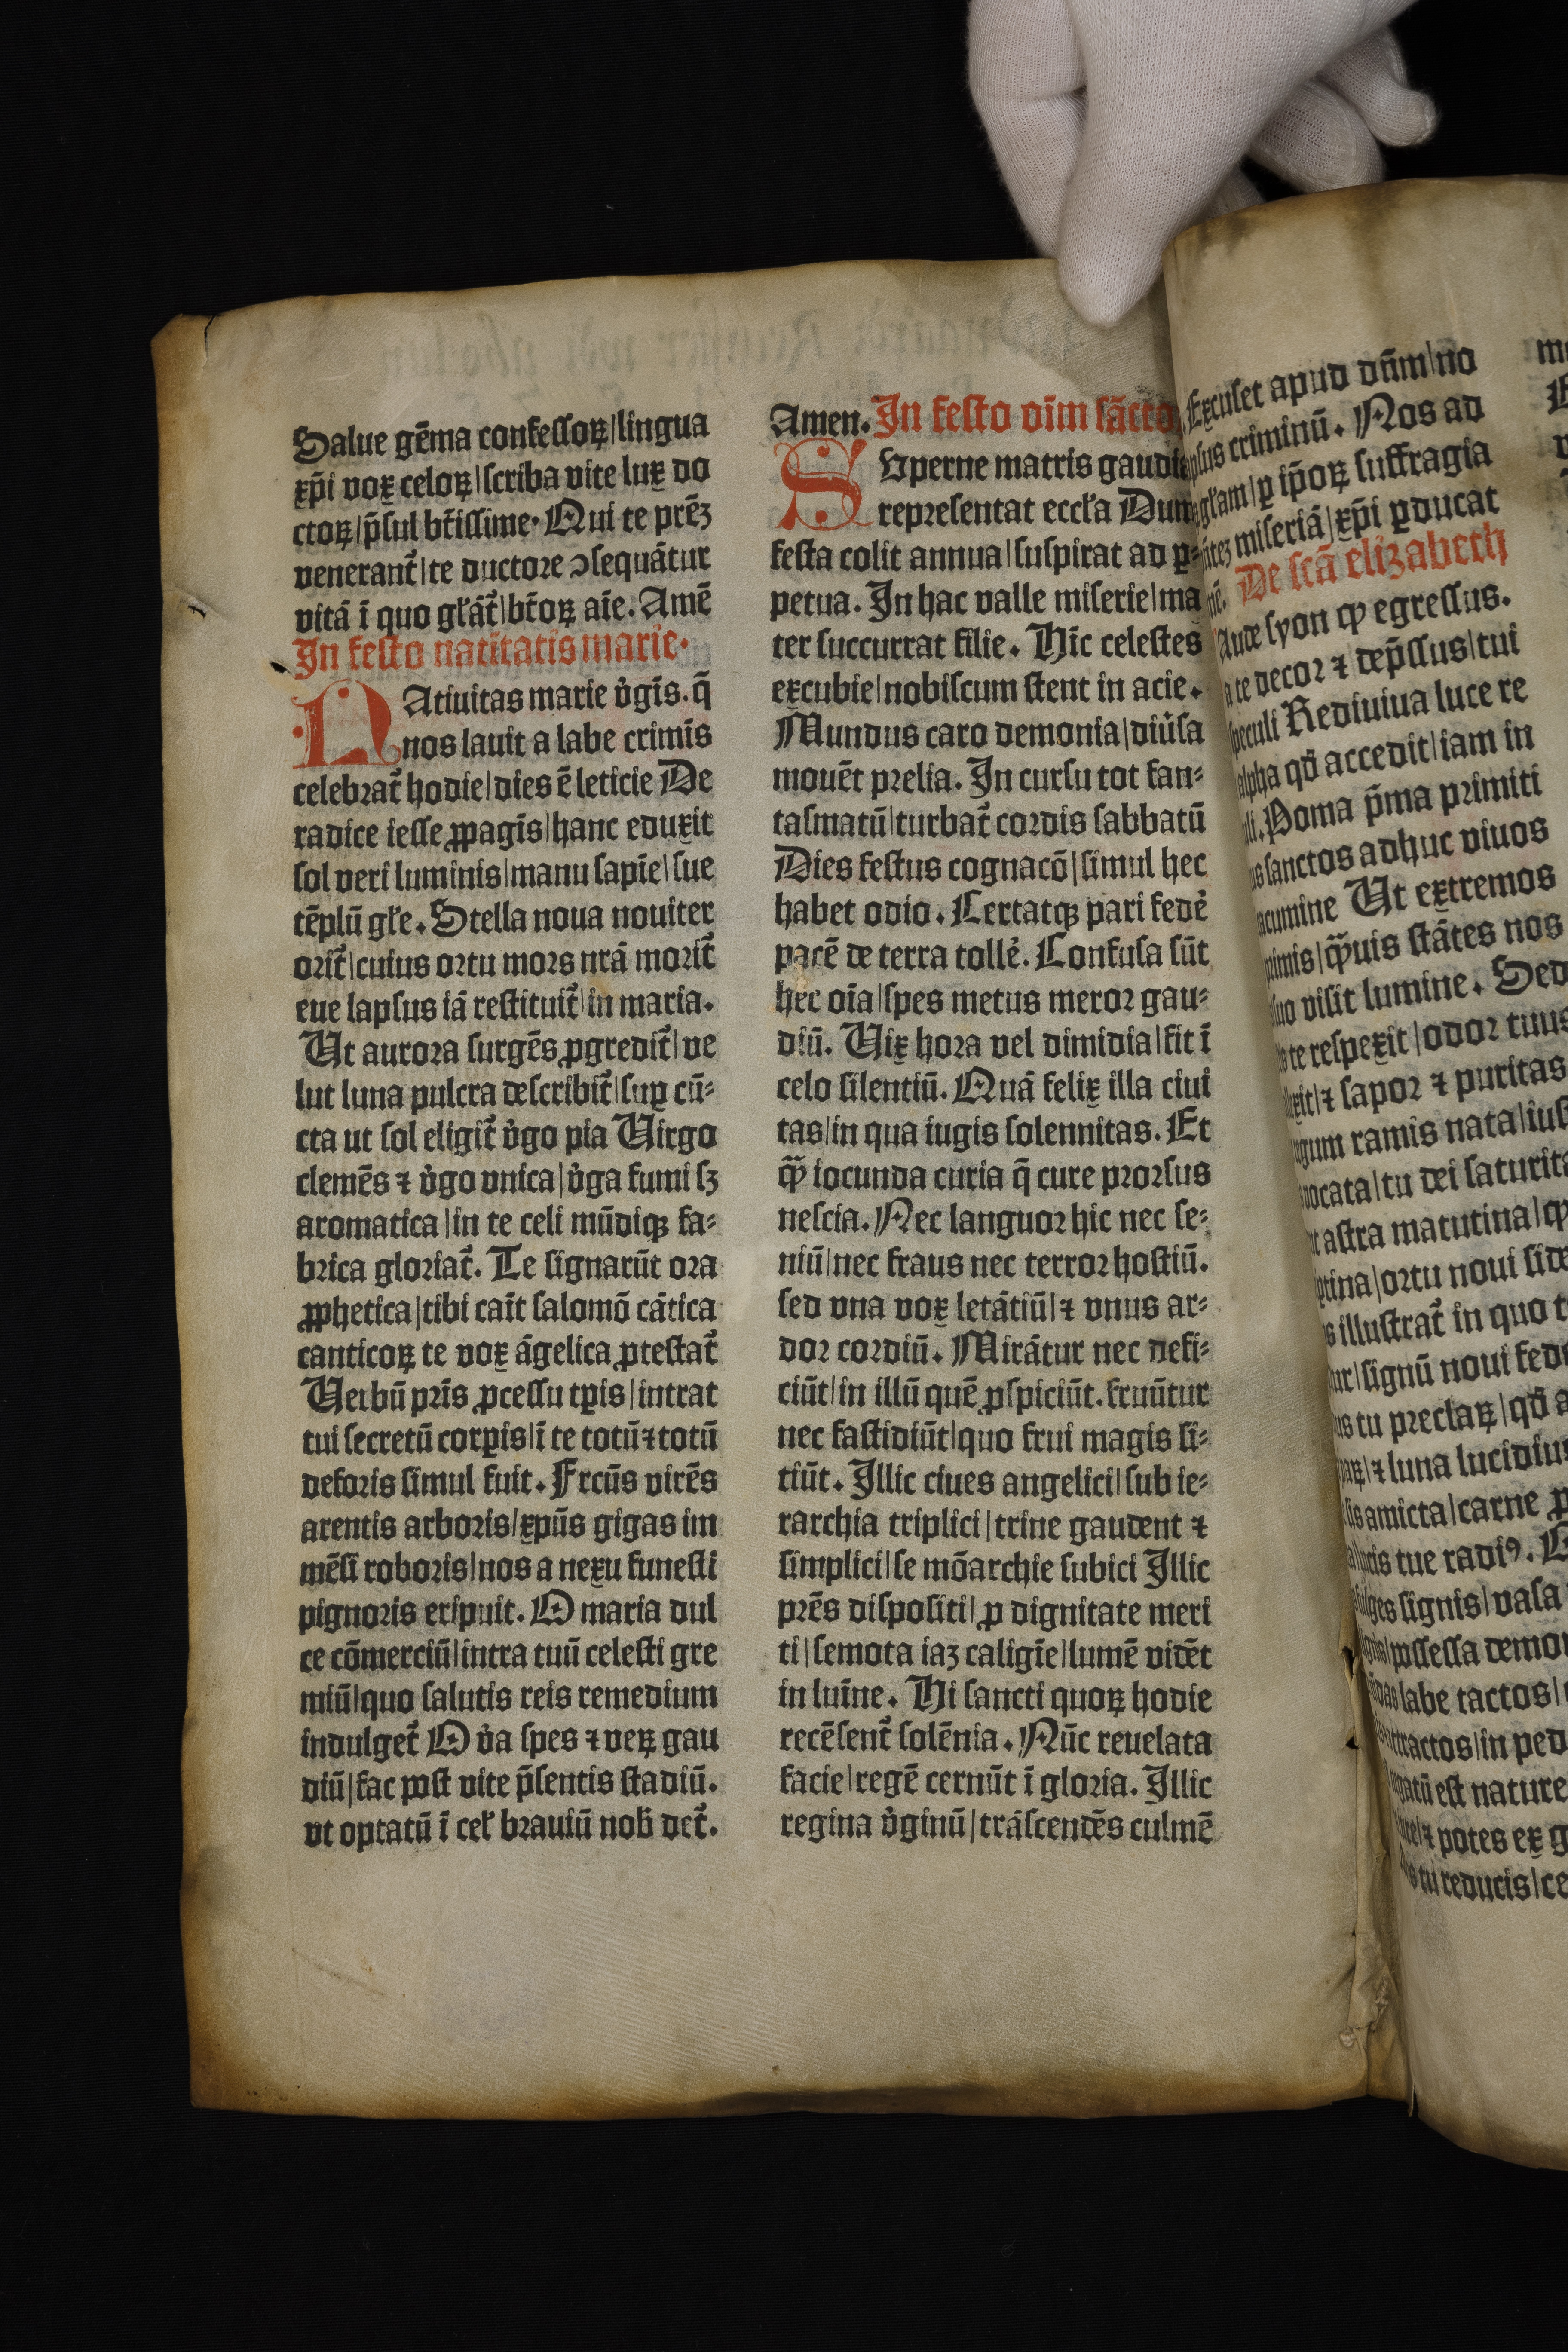 Salue gēma confeſſoꝝ|lingua
xp̄i vox celoꝝ|ſcriba vite lux do
ctoꝝ|p̄ſul bt̄iſſime. Qui te prēꝫ
venerant̄|te ductore ↄſequātur
vitā ī quo gl̄āt̄|bt̄oꝝ aīe. Amē
In feſto natītatis marie.
NAtiuitas marie v̓gīs. q̄
nos lauit a labe crimīs
celebrat̄ hodie|dies ē leticie De
radice ieſſe ꝓpagīs|hanc eduxit
ſol veri luminis|manu ſapīe|ſue
tēplū gl̄e. Stella noua nouiter
orit̄|cuius ortu mors nrā morit̄
eue lapſus iā reſtituit̄|in maria.
Ut aurora ſurgēs ꝓgredit̄|ve
lut luna pulcra deſcribit̄|ſuꝑ cū⸗
cta ut ſol eligit̄ v̓go pia Uirgo
clemēs ⁊ v̓go vnica|v̓ga fumi ſꝫ
aromatica|in te celi mūdiqꝫ fa⸗
brica gloriat̄. Te ſignarūt ora
ꝓphetica|tibi caīt ſalomō cātica
canticoꝝ te vox āgelica ꝓteſtat̄
Uerbū prīs ꝓceſſu tꝑis|intrat
tui ſecretū corꝑis|ī te totū⁊totū
deforis ſimul fuit. Frcūs virēs
arentis arboris|xpūs gigas im
mēſi roboris|nos a nexu funeſti
pignoris eripuit. O maria dul
ce cōmerciū|intra tuū celeſti gre
miū|quo ſalutis reis remedium
indulget̄ O v̓a ſpes ⁊ veꝝ gau
diū|fac poſt vite p̄ſentis ſtadiū.
vt optatū ī cel̄ brauiū nob̄ det̄.
Amen. In feſto oīm ſācto
SUperne matris gaudi
repreſentat eccl̄a Dum
feſta colit annua|ſuſpirat ad ꝑ⸗
petua. In hac valle miſerie|ma
ter ſuccurrat filie. Hic celeſtes
excubie|nobiſcum ſtent in acie.
Mundus caro demonia|diūſa
mouēt prelia. In curſu tot fan⸗
taſmatū|turbat̄ cordis ſabbatū
Dies feſtus cognacō|ſimul hec
habet odio. Certatqꝫ pari fede̓
pacē de terra tolle̓. Confuſa ſūt
hec oīa|ſpes metus meror gau⸗
diū. Uix hora vel dimidia|fit ī
celo ſilentiū. Quā felix illa ciui
tas|in qua iugis ſolennitas. Et
ꝙ̄ iocunda curia q̄ cure prorſus
neſcia. Nec languor hic nec ſe⸗
niū|nec fraus nec terror hoſtiū.
ſed vna vox letātiū|⁊ vnus ar⸗
dor cordiū. Mirātur nec defi⸗
ciūt|in illū quē ꝓſpiciūt. fruūtur
nec faſtidiūt|quo frui magis ſi⸗
tiūt. Illic ciues angelici|ſub ie⸗
rarchia triplici|trine gaudent ⁊
ſimplici|ſe mōarchie ſubici Illic
prēs diſpoſiti|ꝓ dignitate meri
ti|ſemota iaꝫ caligīe|lumē vidēt
in luīne. Hi ſancti quoꝝ hodie
recēſent̄ ſolēnia. Nūc reuelata
facie|regē cernūt ī gloria. Illic
regina v̓ginū|trāſcendēs culmē
Excuſet apud dn̄m|no
criminū. Nos ad
gl̄am|ꝑ ip̄oꝝ ſuffragia
miſeriā|xp̄i ꝑducat
De ſcā elizabeth
ſyon ꝙ egreſſus.
te decor ⁊ dep̄ſſus|tui
ſpeculi Rediuiua luce re
alpha qd̄ accedit|iam in
Poma p̄ma primiti
ſanctos adhuc viuos
acumine Ut extremos
ꝙ̄uis ſtātes nos
viſit lumine. Sed
te reſpexit|odor tuus
⁊ ſapor ⁊ puritas
ramis nata|iuſ
tu dei ſaturita
aſtra matutina|
ortu noui ſide
illuſtrat̄ in quo t
ſignū noui fede
tu preclaꝝ|qd̄ a
⁊ luna lucidiu
amicta|carne
tue radi⁹.
ſignis|vaſa
poſſeſſa demo
labe tactos|
in ped
eſt nature
⁊ potes ex g
tu reducis|ce